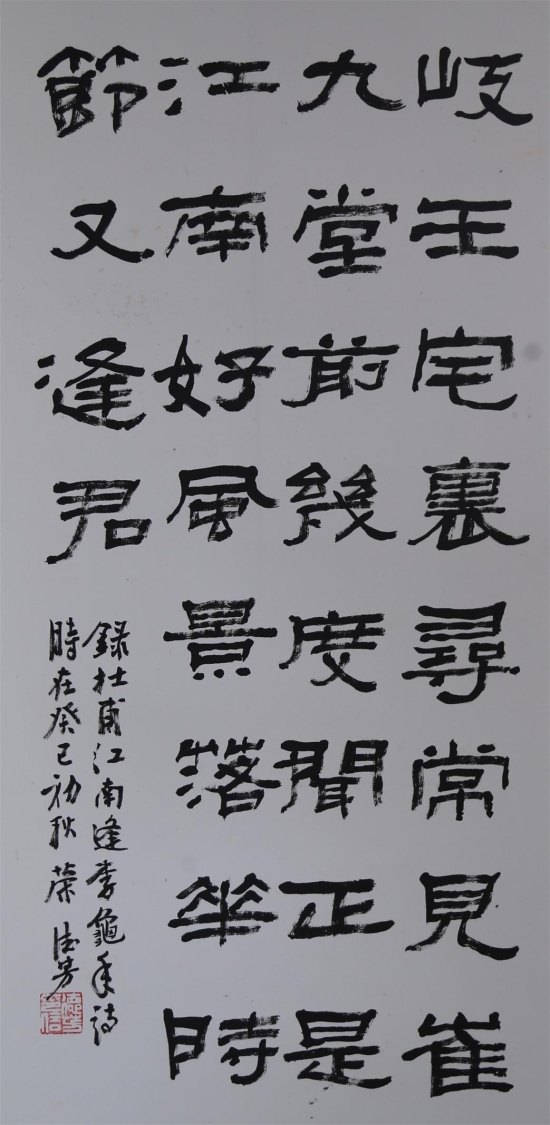 岐王宅裏尋常見崔
九堂前幾度聞正是
江南好風景落花時
節又逢君
録杜甫江南逢李龜年詩
時在癸巳初秋 榮德芳